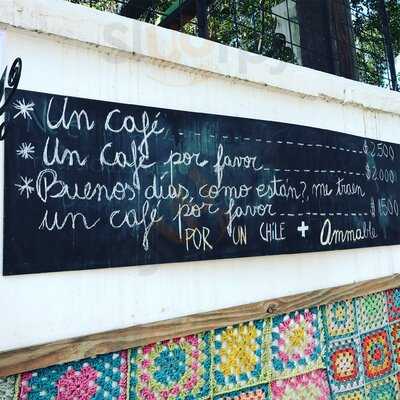 * Un café ---------------- $2500
* Un café por favor ------------ $2000
* Buenos días, como están?, me traen
un café por favor ------------ $1500
POR UN CHILE + Ammable